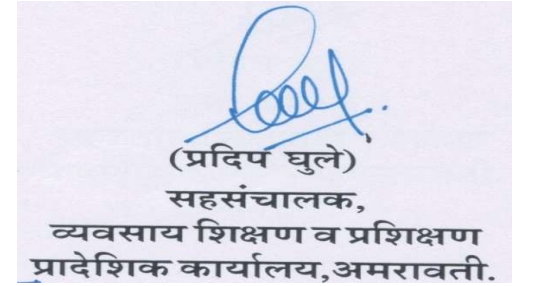 (प्रदिप घुले)
सहसंचालक,
व्यवसाय शिक्षण व प्रशिक्षण
प्रादेशिक कार्यालय,अमरावती.